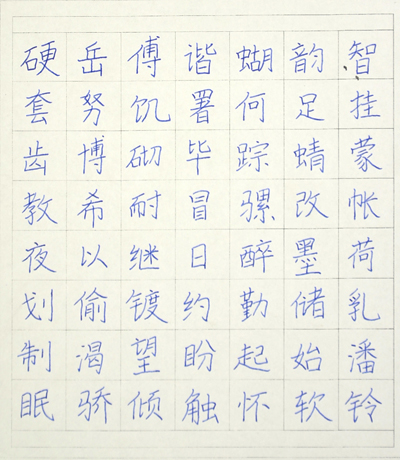 硬岳傅谐蝴韵智
套努饥署何足挂
齿博砌毕踪蜻蒙
教希耐冒骡改帐
夜以继日醉墨荷
划偷镀约勤储乳
制渴望盼起始潘
眠骄倾触怀软铃